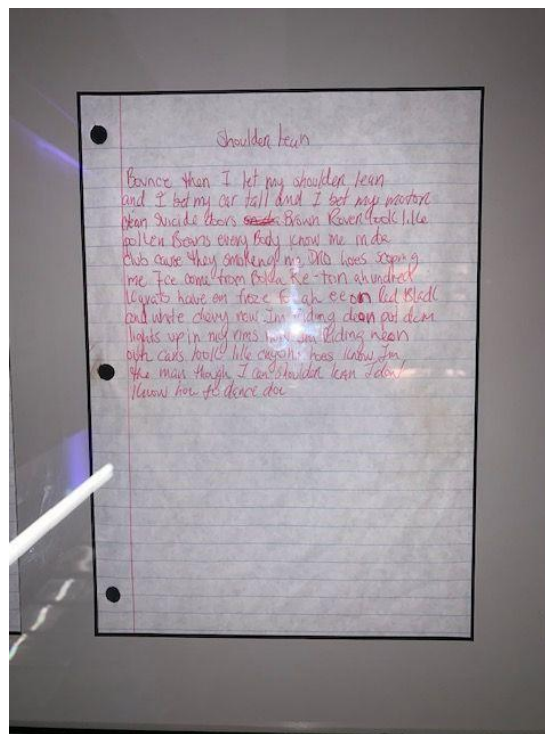 Shoulder Lean
Bounce then I let my shoulder lean
and I bet my car tall and I bet my motor
clean Suicide doors Brown Rover look like
pollen Beans every Body know me in da
club cause they smokeing my DRO hoes scoping
me Ice come from a hundred
Karats have em froze for ah eeon Red Black
and white chevy now Im riding deon put dem
lights up in my rims now Im Riding neon
ouh cars look like crayons hoes know Im
the man though I can shoulder lean I don't
Know how to dance doe